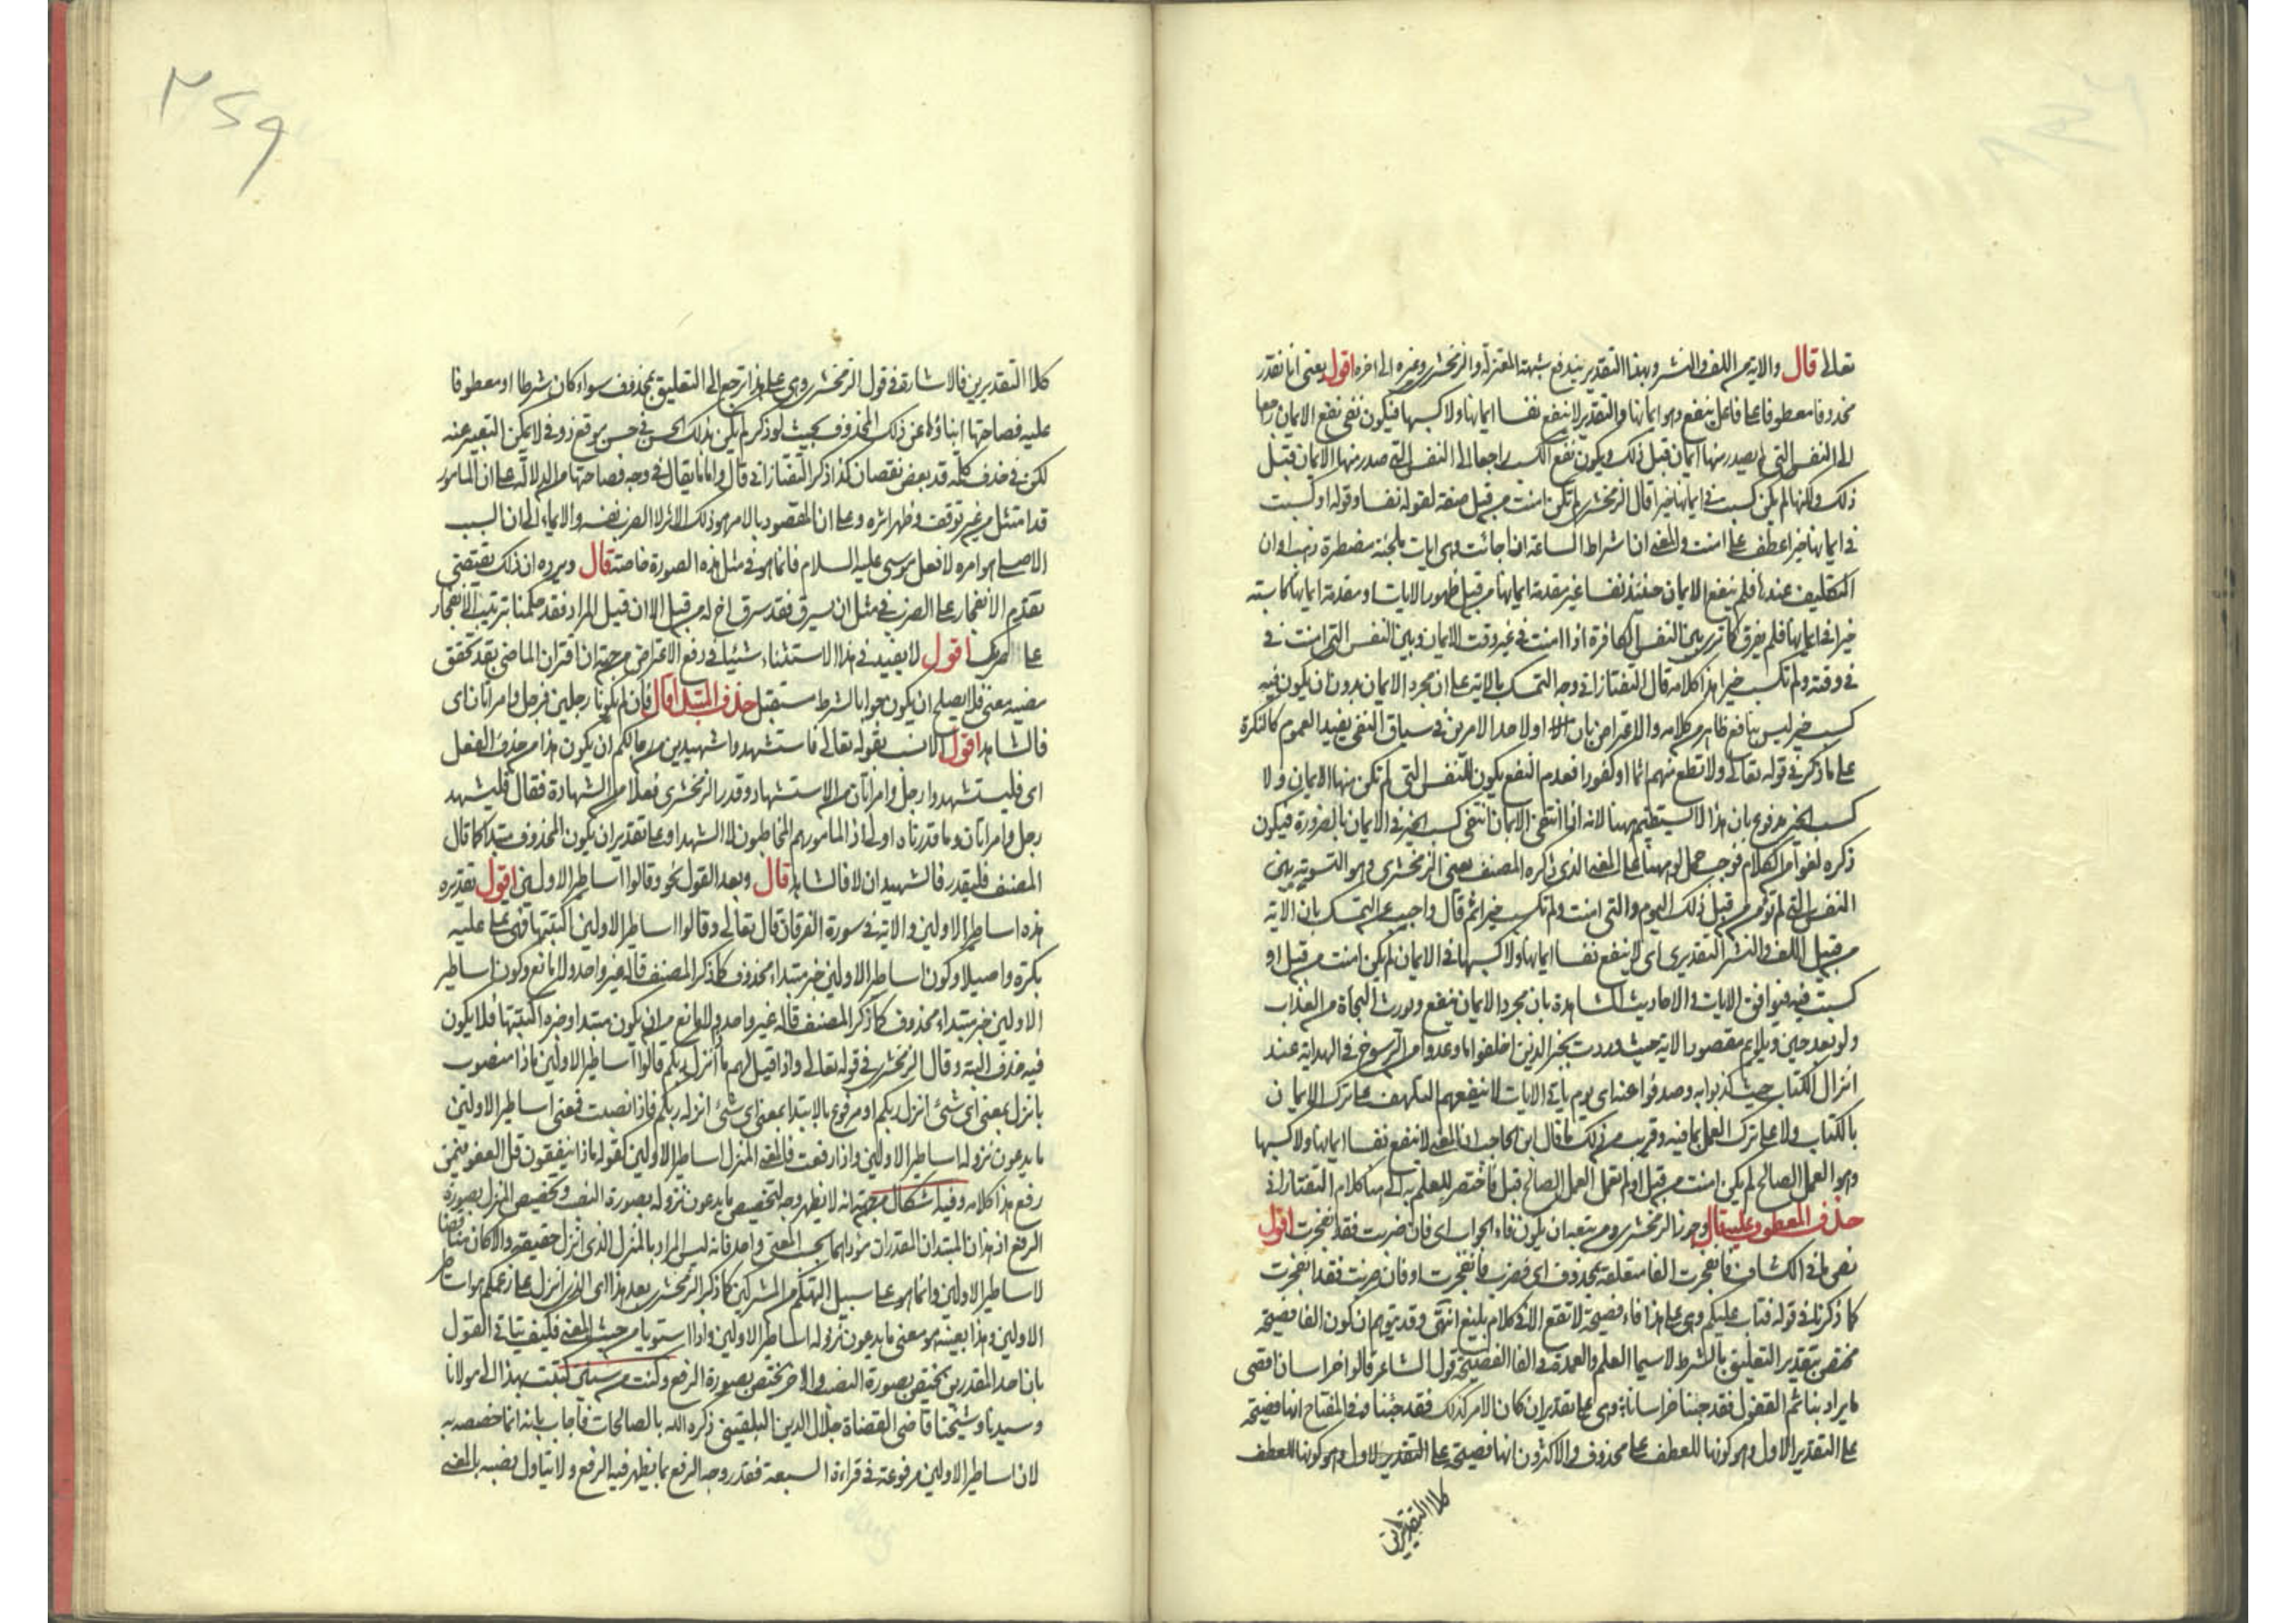 تعالى قال والاية من اللف والنشر وبهذا التقدير يندفع شبهة المعتزلة والزمخشرى وغيره الى اخره اقول يعنى انا نقدر
محذوفا معطوفا على فاعل ينفع وهو ايمانها والتقدير لا ينفع نفسا ايمانها ولا كسبها فيكون نفى نفع الايمان راجعا
الى النفس التى لم يصدر منها ايمان قبل ذلك ويكون نفع الكسب راجعا الى النفس التى صدر منها الايمان قبل
ذلك ولكنها لم يكن كسبت فى ايمانها خيرا قال الزمخشرى لم تكن امنت من قبل صفة لقوله نفسا وقوله او كسبت
فى ايمانها خيرا عطف على امنت والمعنى ان اشراط الساعة اذا جائت وهى ايات ملجئة مضطرة ذهب اوان
التكليف عندها فلم ينفع الايمان حينئذ نفسا غير مقدمة ايمانها من قبل ظهور الايات او مقدمة ايمانها كاسبة
خيرا فى ايمانها فلم يفرق كما ترى بين النفس الكافرة اذا امنت فى غير وقت الايمان وبين النفس التى امنت فى
فى وقته ولم تكسب خيرا هذا كلامه قال التفتازانى وجه التمسك بالاية على ان مجرد الايمان بدون ان يكون فيه
كسب خير ليس بنافع ظاهر من كلامه والاعتراض بان او لاحد الامرين فى سياق النفى يفيد العموم كالنكرة
على ما ذكر فى قوله تعالى ولا تطع منهم اثما او كفورا فعدم النفع يكون للنفس التى لم تكن منها الايمان ولا
كسب الخير مدفوع بان هذا لا يستقيم ههنا لانه اذا انتفى الايمان انتفى كسب الخير فى الايمان بالضرورة فيكون
ذكره لغوا من الكلام فوجب حمل او ههنا على المعنى الذى ذكره المصنف يعنى الزمخشرى وهو التسوية بين
النفس التى لم تؤمن من قبل ذلك اليوم والتى امنت ولم تكسب خيرا ثم قال واجيب عن التمسك بان الاية
من قبيل اللف والنشر التقديرى اى لا ينفع نفسا ايمانها ولا كسبها فى الايمان لم يكن امنت من قبل او
كسبت فيه فتوافق الايات والاحاديث الشاهدة بان مجرد الايمان ينفع ويورث النجاة من العذاب
ولو بعد حين ويلايم مقصود الاية حيث وردت بخبر الذين اخلفوا ما وعدوا من الرسوخ فى الهداية عند
انزال الكتاب حيث كذبوا به وصدفوا عنه اى يوم ياتى الايات لا ينفعهم التلهف على ترك الايمان
بالكتاب ولا على ترك العمل بما فيه وقريب من ذلك ما قال ابن الحاجب ان المعنى لا ينفع نفسا ايمانها ولا كسبها
وهو العمل الصالح لم يكن امنت من قبل او لم تعمل العمل الصالح قبل فاختصر للعلم به الى هنا كلام التفتازانى
حذف المعطوف عليه قال وجوزنا الزمخشرى ومن تبعه ان يكون فاء الجواب اى فان ضربت فقد انفجرت اقول
نص ما فى الكشاف فانفجرت الفا متعلقة بمحذوف اى فضرب فانفجرت او فان ضربت فقد انفجرت
كما ذكرنا فى قوله فتاب عليكم وهى على هذا فاء فصيحة لا تقع الا فى كلام بليغ انتهى وقد يتوهم ان كون الفا فصيحة
مختص بتقدير التعليق بالشرط لا سيما العلم والعمدة فى الفا الفصيحة قول الشاعر قالوا خراسان اقصى
ما يراد بنا ثم القفول فقد جئنا خراسانا وهى على تقدير ان كان الامر كذلك فقد جئنا وفى المفتاح انها فصيحة
على التقدير الاول وهو كونها للعطف على محذوف والاكثرون انها فصيحة على التقدير الاول وهو كونها للعطف
كلا التقديرين
٢٥٩
كلا التقديرين فالاشارة فى قول الزمخشرى وهى على هذا ترجع الى التعليق بمحذوف سواء كان شرطا او معطوفا
عليه فصاحتها انباؤها عن ذلك المحذوف بحيث لو ذكر لم يكن بذلك الحسن فى حسن موقع ذوقى لا يمكن التعبير عنه
لكن فى حذف كلمة قد بعض نقصان كذا ذكر التفتازانى قال واما ما يقال فى وجه فصاحتها من الدلالة على ان المامور
قد امتثل من غير توقف وظهر اثره وعلى ان المقصود بالامر هو ذلك الاثر لا الضرب نفسه والايماء الى ان السبب
الاصلى هو امره لا فعل موسى عليه السلام فانما هو فى مثل هذه الصورة خاصة قال ويرده ان ذلك يقتضى
تقدم الانفجار على الضرب فى مثل ان يسرق فقد سرق اخ له من قبل الا ان قيل المراد فقد حكمنا بترتيب الانفجار
على ضربك اقول لا يفيد فى هذا الاستثناء شيئا فى دفع الاعتراض من جهة ان اقتران الماضى بقد تحقق
مضيه معنى فلا يصلح ان يكون جوابا لشرط مستقبل حذف المبتدا قال فان لم يكونا رجلين فرجل وامراتان اى
فالشاهد اقول الانسب بقوله تعالى فاستشهدوا شهيدين من رجالكم ان يكون هذا من حذف الفعل
اى فليستشهدوا رجل وامراتان من الاستشهاد وقدر الزمخشرى فعلا من الشهادة فقال فليشهد
رجل وامراتان وما قدرناه اولى اذ المامور هم المخاطبون لا الشهدا وعلى تقدير ان يكون المحذوف مبتدا كما قال
المصنف فليقدر فالشهيدان لا فالشاهد قال وبعد القول نحو وقالوا اساطير الاولين اقول تقديره
هذه اساطير الاولين والاية فى سورة الفرقان قال تعالى وقالوا اساطير الاولين اكتتبها فهى تملى عليه
بكرة واصيلا وكون اساطير الاولين خبر مبتداء محذوف كما ذكر المصنف قاله غير واحد ولا مانع وكون اساطير
الاولين خبر مبتداء محذوف كما ذكر المصنف قاله غير واحد ولا مانع من ان يكون مبتدا وخبره اكتتبها فلا يكون
فيه حذف البتة وقال الزمخشرى فى قوله تعالى واذا قيل لهم ما ذا انزل ربكم قالوا اساطير الاولين ماذا منصوب
بانزل بمعنى اى شئ انزل ربكم او مرفوع بالابتدا بمعنى اى شئ انزله ربكم فاذا نصبت فمعنى اساطير الاولين
ما يدعون نزوله اساطير الاولين واذا رفعت فالمعنى المنزل اساطير الاولين كقوله ماذا ينفقون قل العفو فيمن
رفع هذا كلامه وفيه اشكال من جهة انه لا يظهر وجه لتخصيص ما يدعون نزوله بصورة النصب وتخصيص المنزل بصورة
الرفع اذ هذان المبتدان المقدران مؤداهما بحسب المعنى واحد فانه ليس المراد بالمنزل الذى انزل حقيقة والا كان مناقضا
لاساطير الاولين وانما هو على سبيل التهكم من المشركين كما ذكر الزمخشرى بعد هذا اى الذى انزل على زعمكم هو اساطير
الاولين وهذا بعينه هو معنى ما يدعون نزوله اساطير الاولين واذا استويا من حيث المعنى فكيف يتاتى القول
بان احد المقدرين يختص بصورة النصب والاخر يختص بصورة الرفع وكنت من سنين كتبت بهذا الى مولانا
وسيدنا وشيخنا قاضى القضاة جلال الدين البلقينى ذكره الله بالصالحات فاجاب بانه انما خصصه به
لان اساطير الاولين مرفوعة فى قراءة السبعة فقدر وجه الرفع بما يظهر فيه الرفع ولا يتاول نصبه بالمعنى